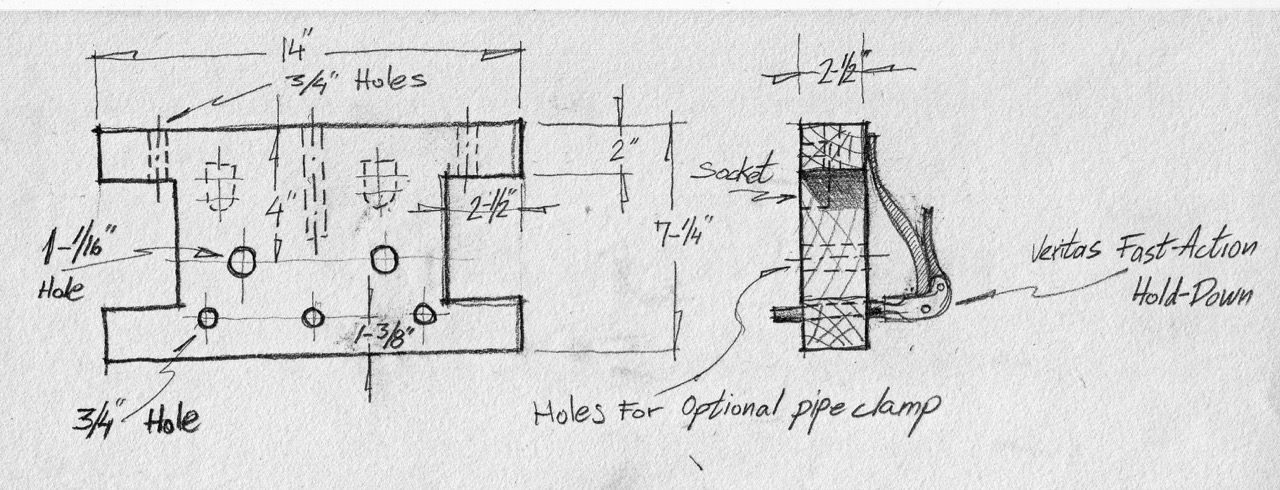 14"
3/4" Holes
2-1/2"
2"
Socket
4"
2-1/2"
7-1/4"
1-1/16"
Hole
Veritas Fast-Action
Hold-Down
1-3/8"
3/4" Hole
Holes For Optional pipe clamp